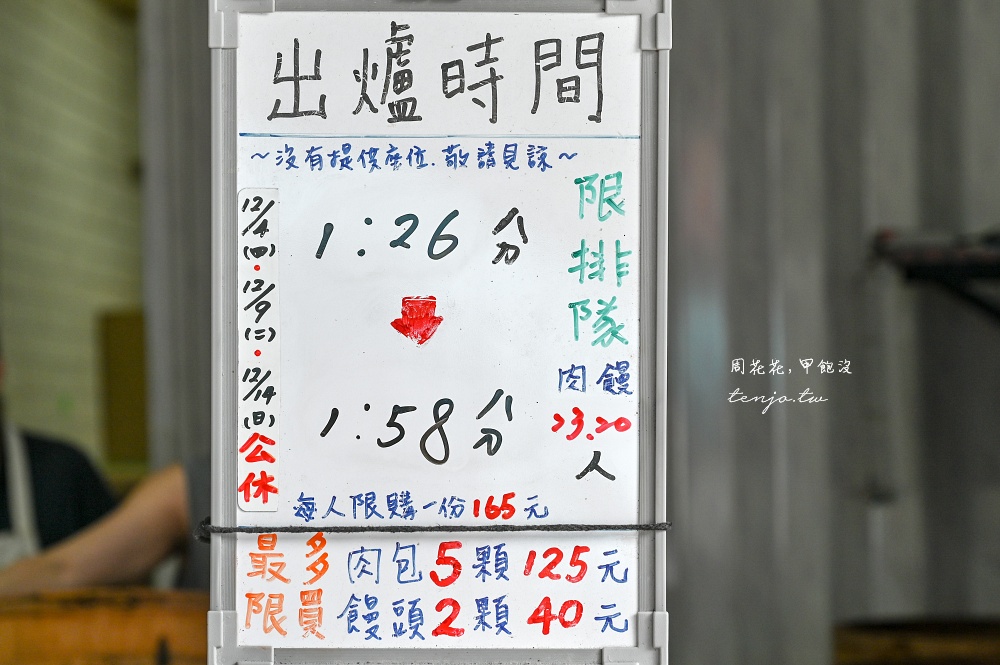 出爐時間
～沒有提供座位.敬請見諒～
12/4(四)・12/9(二)・12/14(日)公休
1:26分
1:58分
限排隊
肉 饅
23.20
人
每人限購一份165元
最多 肉包5顆125元
限買 饅頭2顆40元
周花花,甲飽沒
tenjo.tw